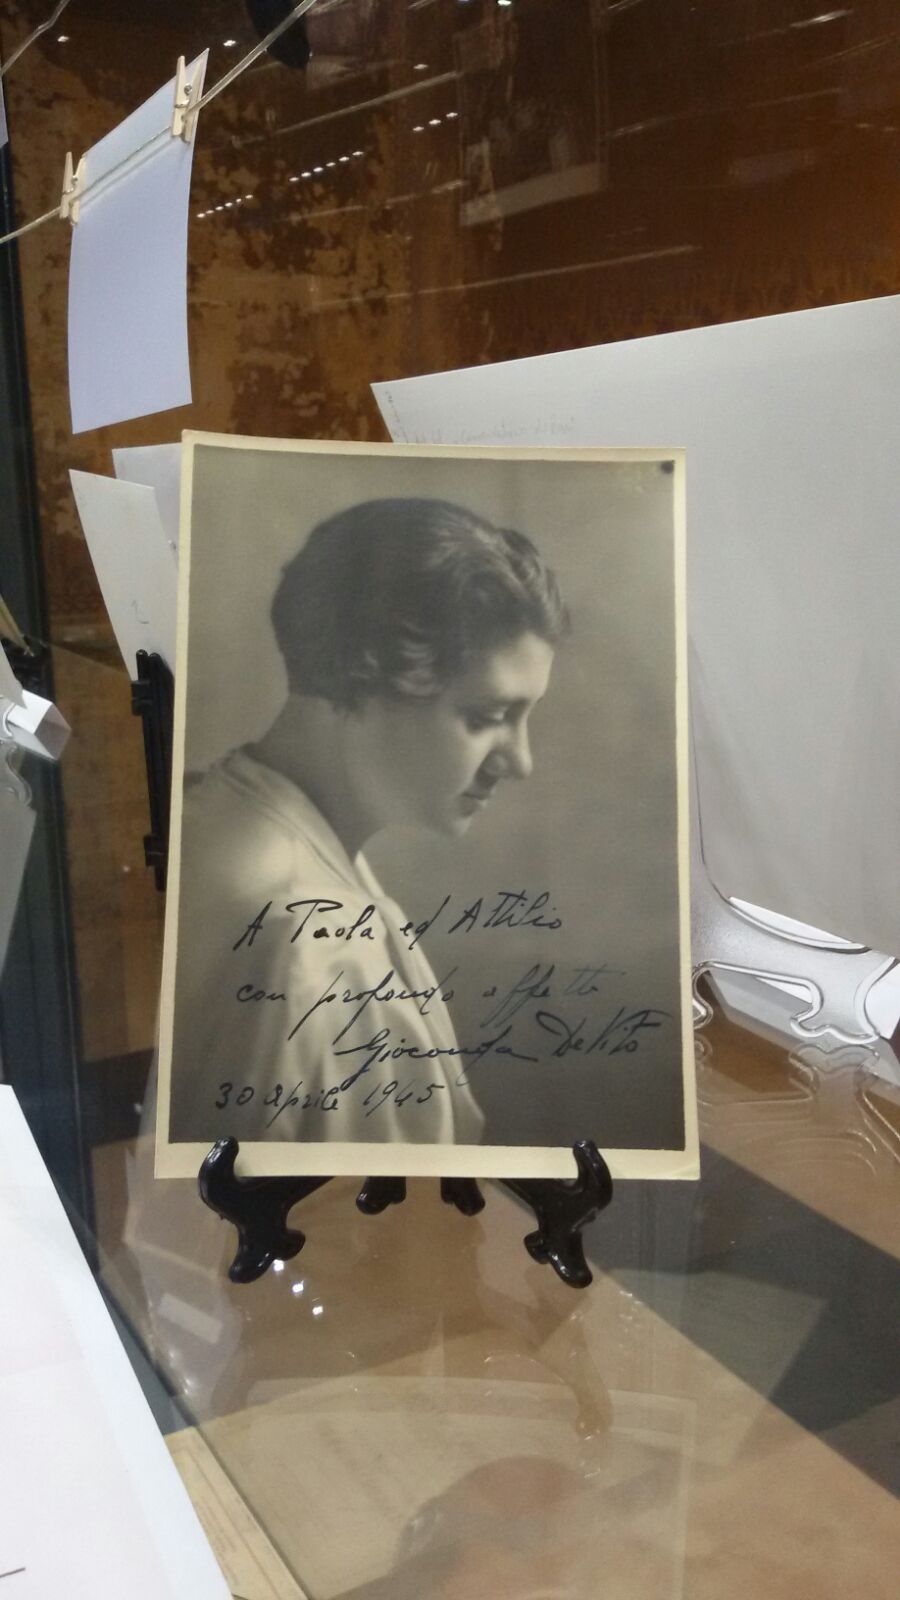 A Paola ed Attilio
con profondo affetto
Gioconda De Vito
30 aprile 1945